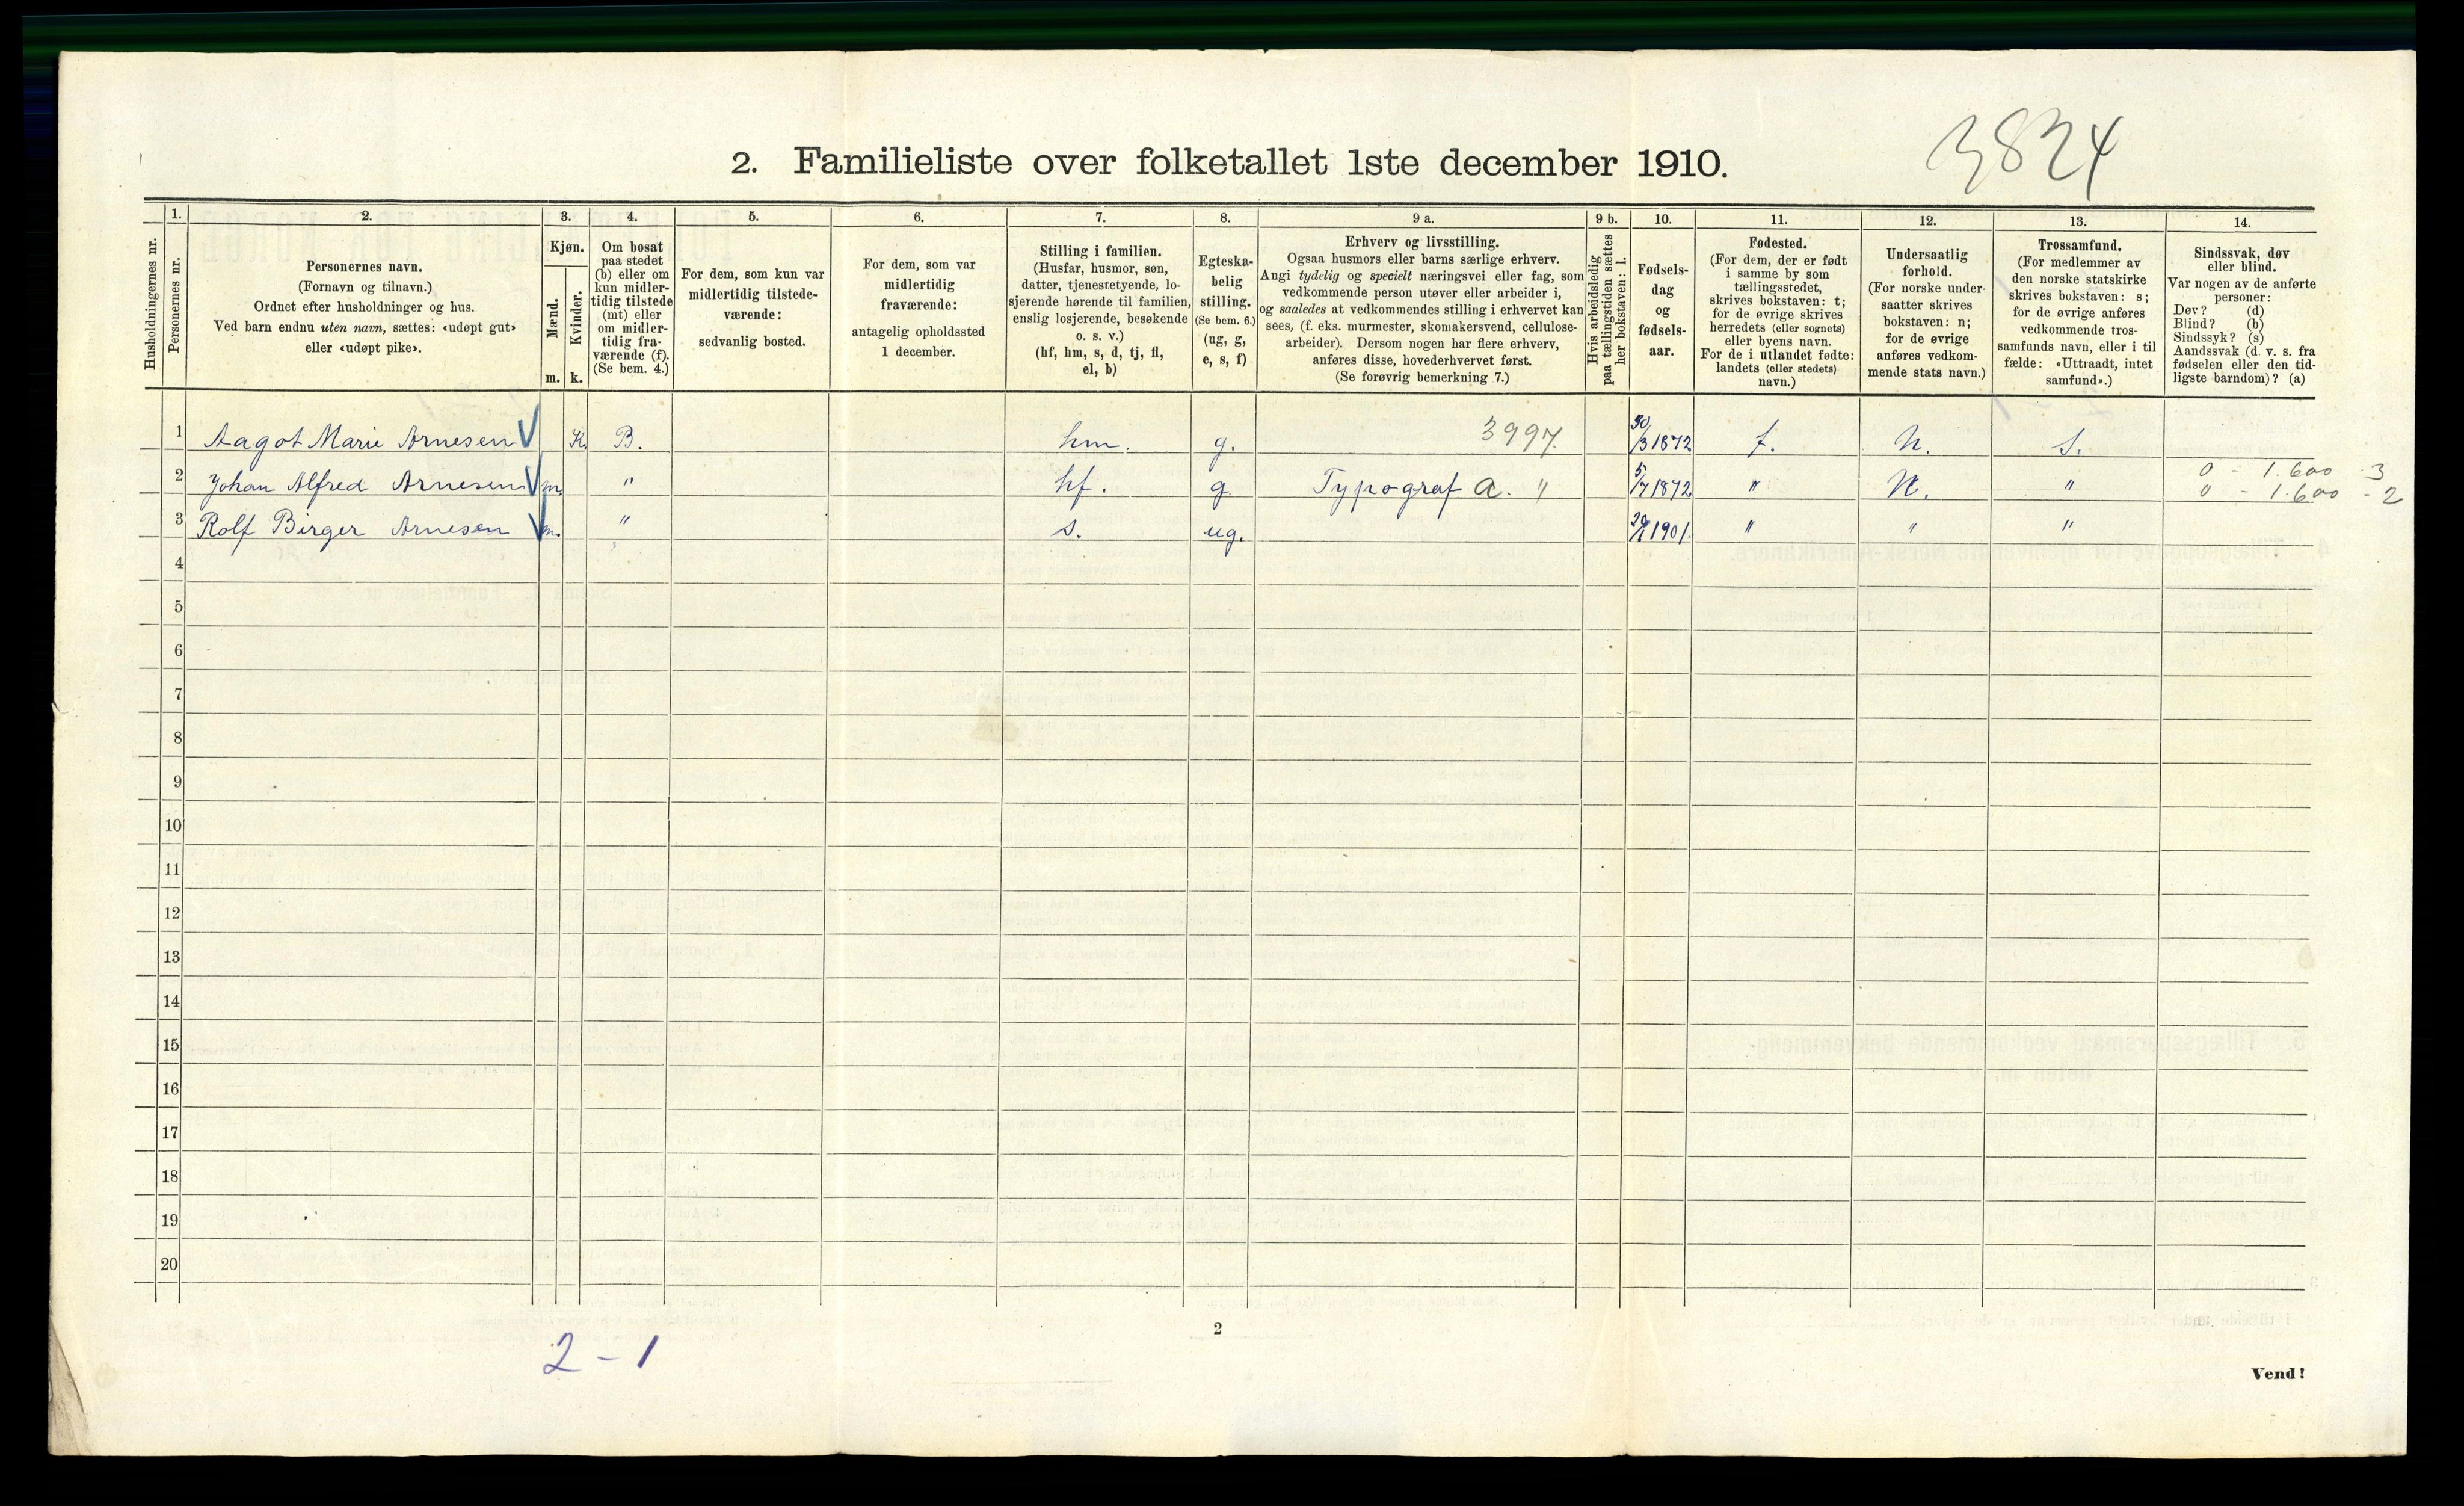 3824
2. Familieliste over folketallet 1ste december 1910.
Husholdningernes nr.
1.
Personernes nr.
2.
Personernes navn.
(Fornavn og tilnavn.)
Ordnet efter husholdninger og hus.
Ved barn endnu uten navn, sættes: «udøpt gut»
eller «udøpt pike».
3.
Kjøn.
Mænd.
Kvinder.
m. k.
4.
Om bosat
paa stedet
(b) eller om
kun midler-
tidig tilstede
(mt) eller
om midler-
tidig fra-
værende (f).
(Se bem. 4.)
5.
For dem, som kun var
midlertidig tilstede-
værende:
sedvanlig bosted.
6.
For dem, som var
midlertidig
fraværende:
antagelig opholdssted
1 december.
7.
Stilling i familien.
(Husfar, husmor, søn,
datter, tjenestetyende, lo-
sjerende hørende til familien,
enslig losjerende, besøkende
o. s. v.)
(hf, hm, s, d, tj, fl,
el, b)
8.
Egteska-
belig
stilling.
(Se bem. 6.)
(ug, g,
e, s, f)
9 a.
Erhverv og livsstilling.
Ogsaa husmors eller barns særlige erhverv.
Angi tydelig og specielt næringsvei eller fag, som
vedkommende person utøver eller arbeider i,
og saaledes at vedkommendes stilling i erhvervet kan
sees, (f. eks. murmester, skomakersvend, cellulose-
arbeider). Dersom nogen har flere erhverv,
anføres disse, hovederhvervet først.
(Se forøvrig bemerkning 7.)
9 b.
Hvis arbeidsledig
paa tællingstiden sættes
her bokstaven: l.
10.
Fødsels-
dag
og
fødsels-
aar.
11.
Fødested.
(For dem, der er født
i samme by som
tællingsstedet,
skrives bokstaven: t;
for de øvrige skrives
herredets (eller sognets)
eller byens navn.
For de i utlandet fødte:
landets (eller stedets)
navn.)
12.
Undersaatlig
forhold.
(For norske under-
saatter skrives
bokstaven: n;
for de øvrige
anføres vedkom-
mende stats navn.)
13.
Trossamfund.
(For medlemmer av
den norske statskirke
skrives bokstaven: s;
for de øvrige anføres
vedkommende tros-
samfunds navn, eller i til
fælde: «Uttraadt, intet
samfund».)
14.
Sindssvak, døv
eller blind.
Var nogen av de anførte
personer:
Døv? (d)
Blind? (b)
Sindssyk? (s)
Aandssvak (d. v. s. fra
fødselen eller den tid-
ligste barndom)? (a)
1 Aagot Marie Arnesen K. B. hm. g. 3997. 30/3 1872 t. N. S.
2 Johan Alfred Arnesen m. " hf. g. Typograf a. " 5/7 1872 " N. " 0 - 1.600 - 3
0 - 1.600 - 2
3 Rolf Birger Arnesen m. " s. ug. 1901. " " "
4
5
6
7
8
9
10
11
12
13
14
15
16
17
18
19
20
2
2 - 1
Vend!